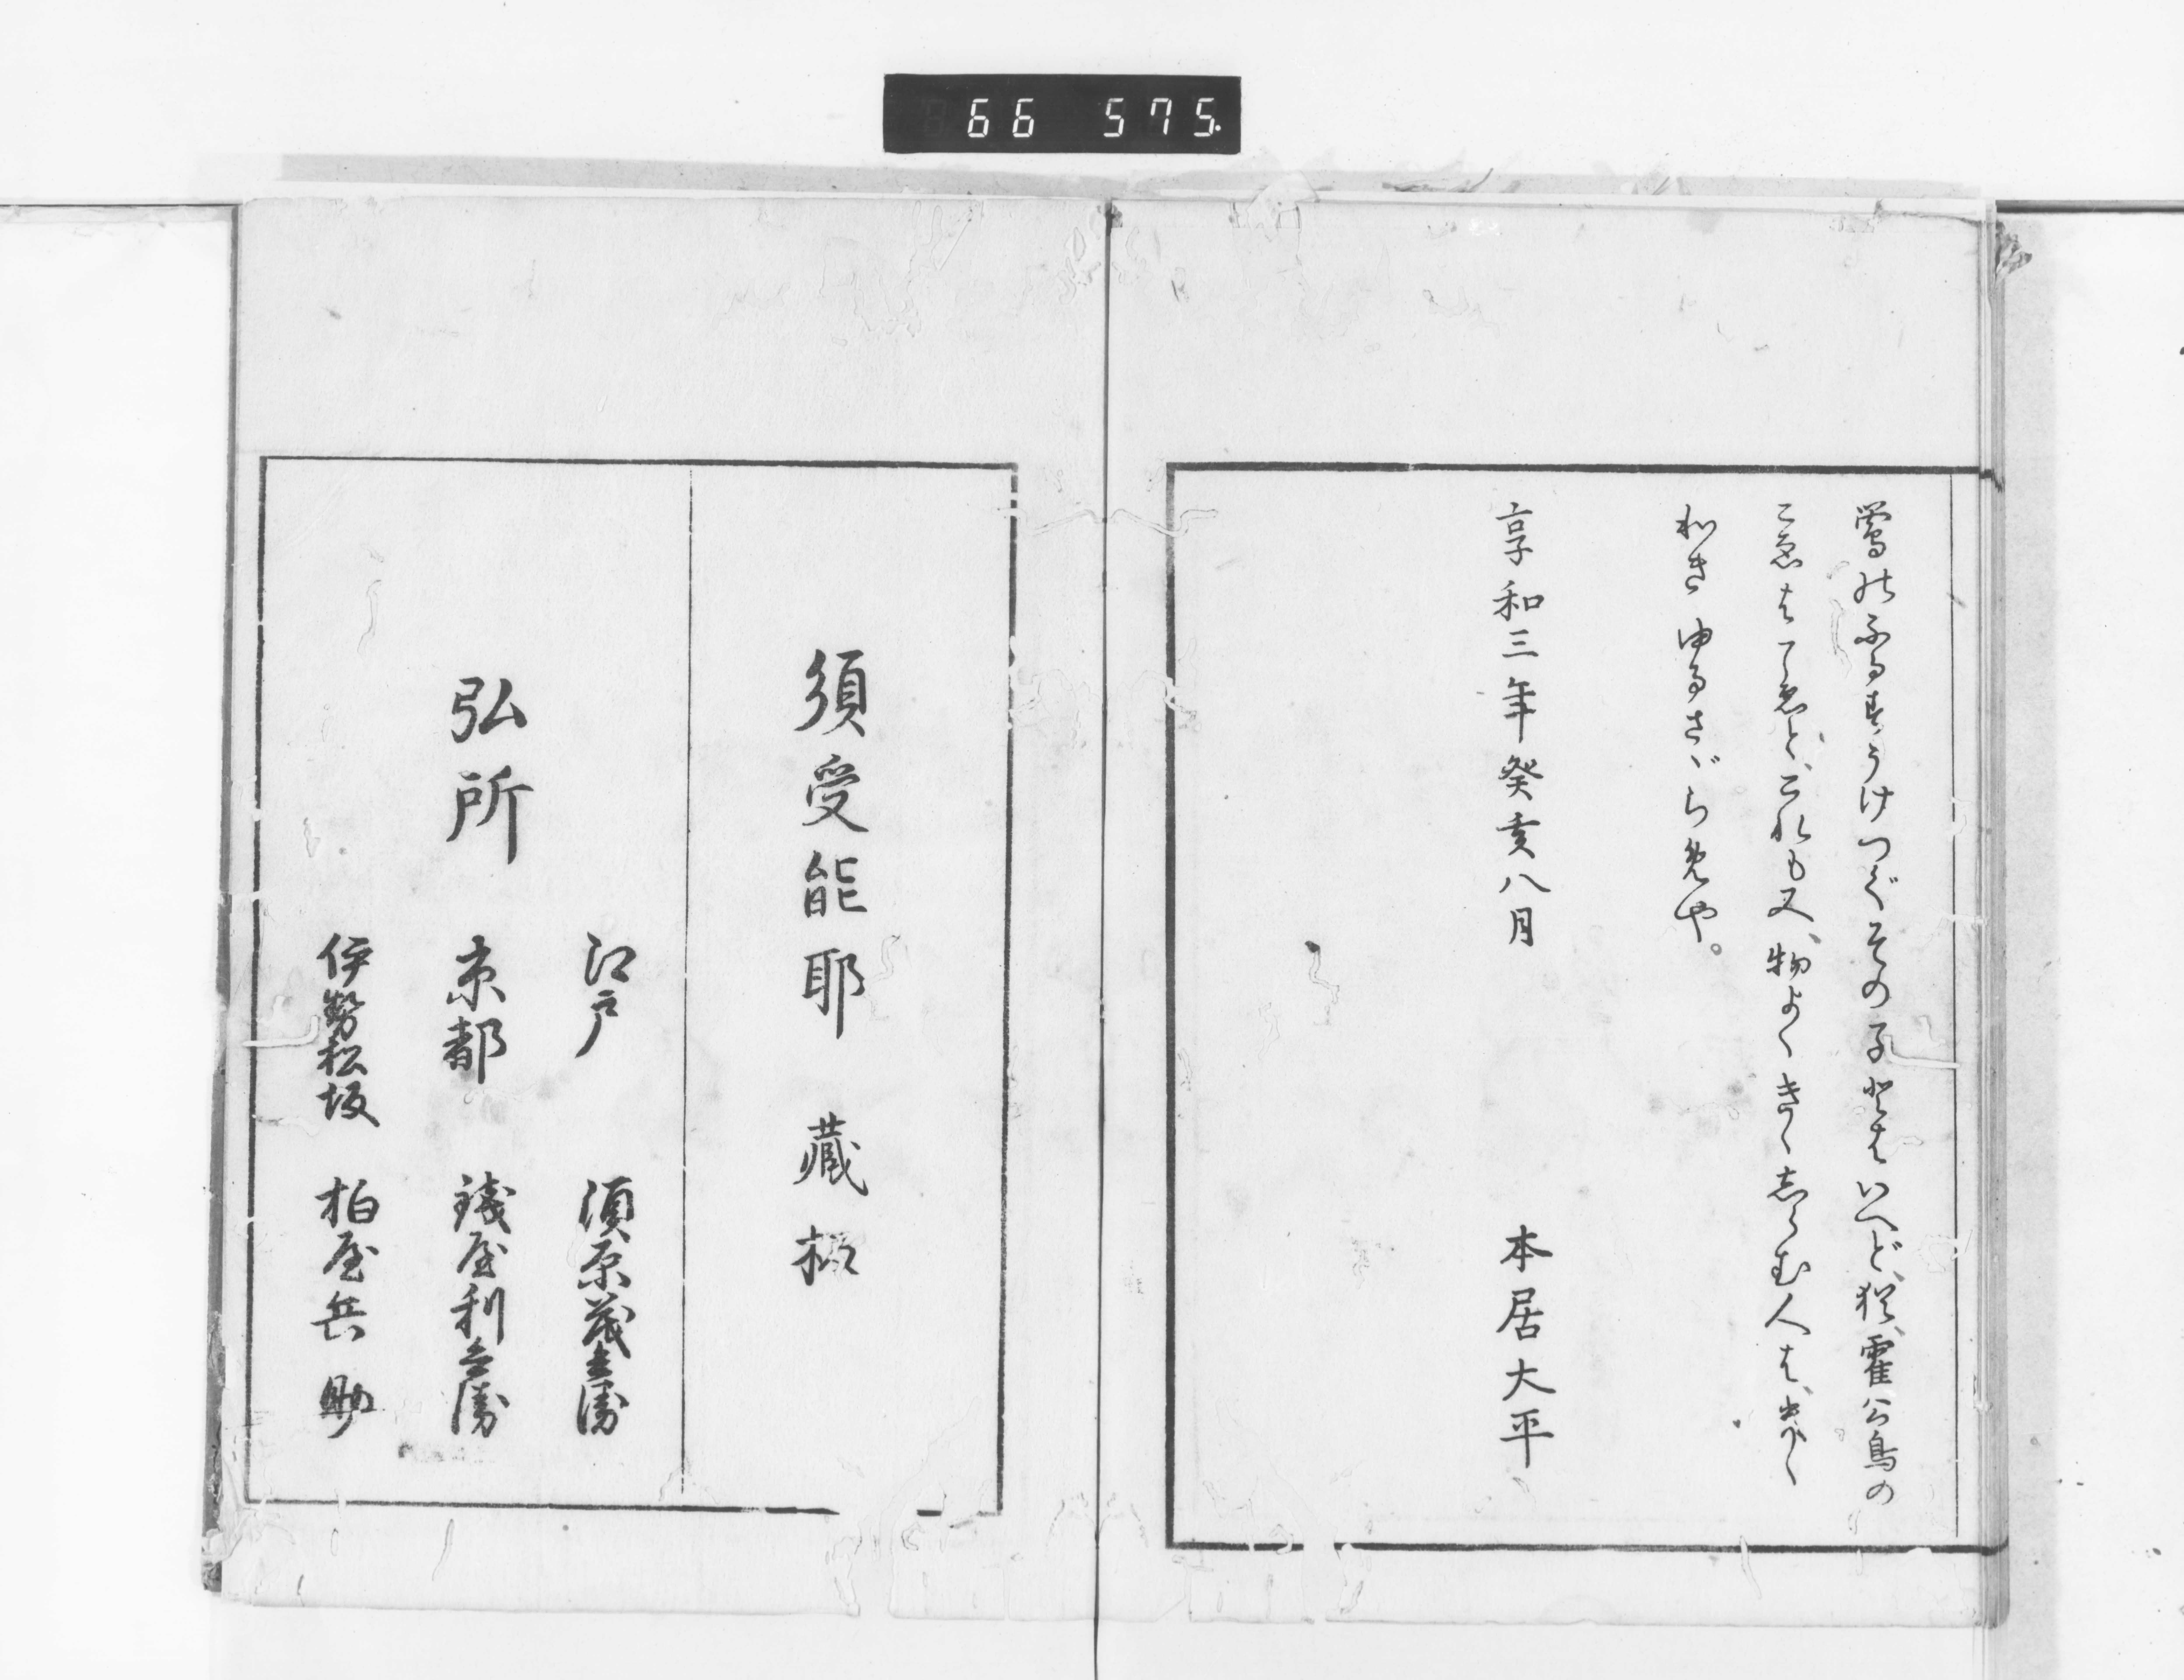 66 575.
鶯のふるすうけつぐその子とはいへど、猶、霍公鳥の
こゑはこゑと、これも又、物よくきゝ志らむ人は、
ゆるさゞらめや。
享和三年癸亥八月 本居大平
須受能耶 蔵板
弘所
江戸 須原茂兵衛
京都 銭屋利兵衛
伊勢松坂 柏屋兵助